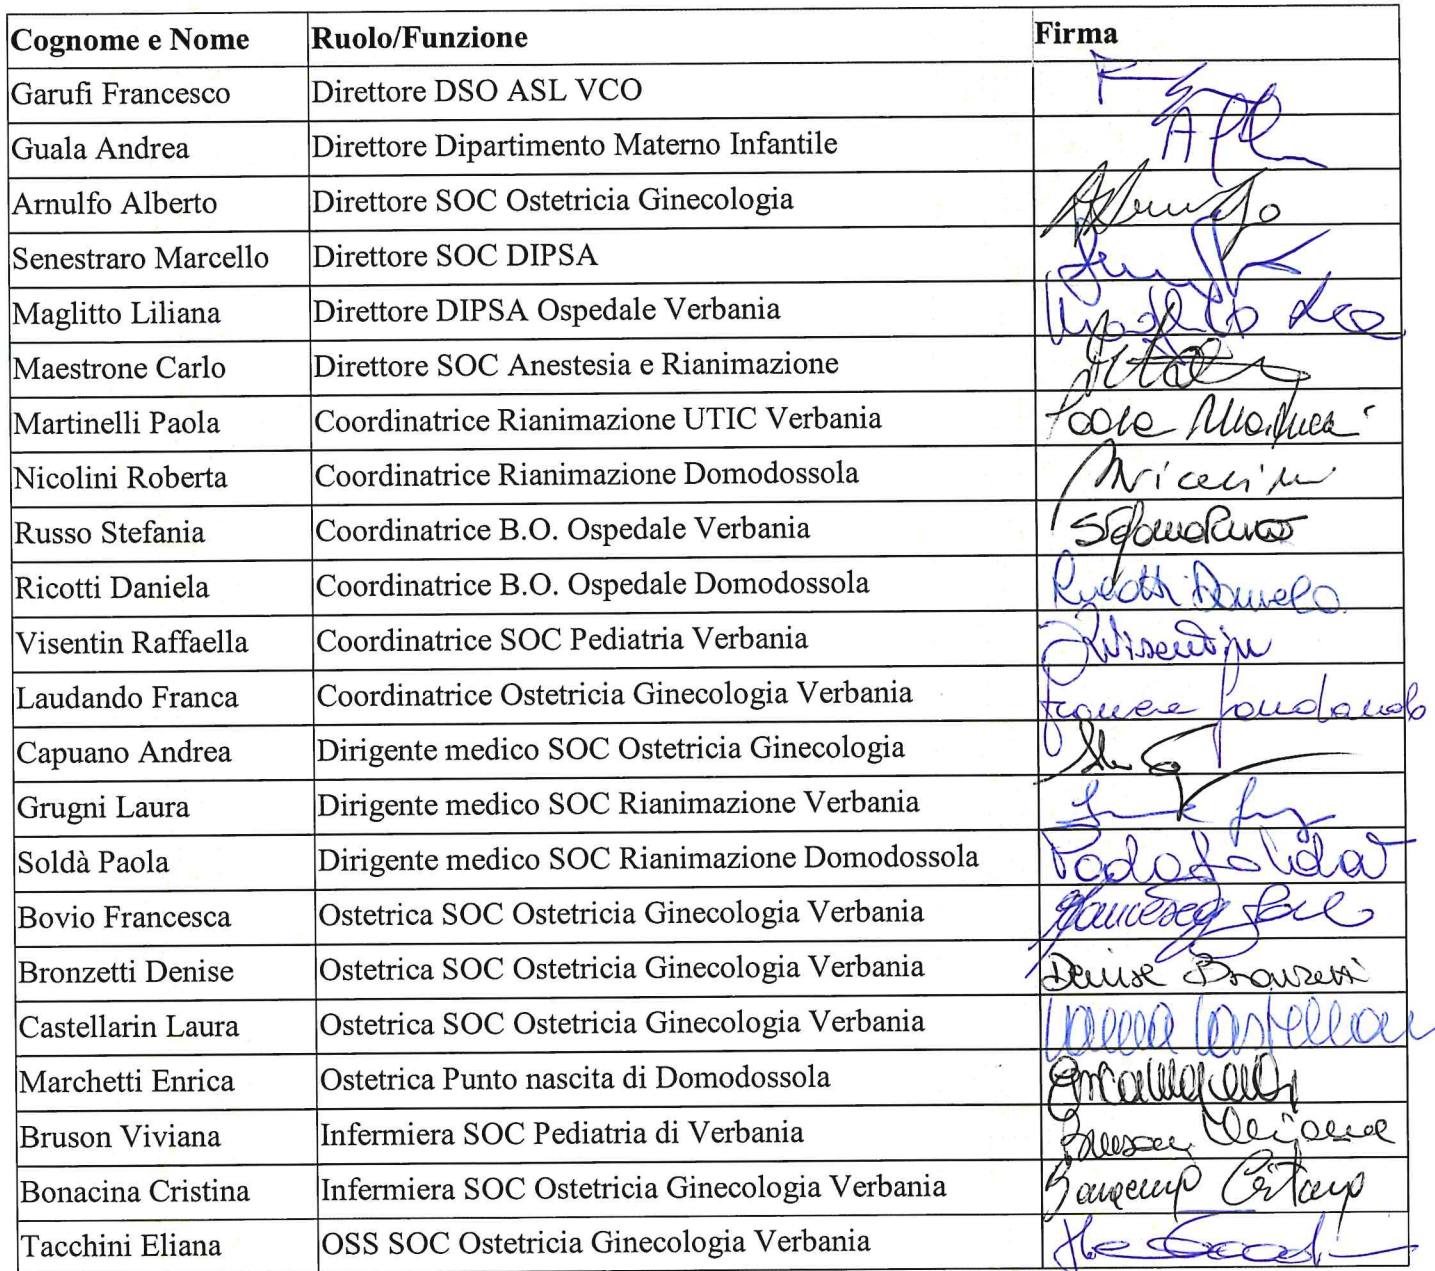 Cognome e Nome Ruolo/Funzione Firma
Garufi Francesco Direttore DSO ASL VCO
Guala Andrea Direttore Dipartimento Materno Infantile
Arnulfo Alberto Direttore SOC Ostetricia Ginecologia
Senestraro Marcello Direttore SOC DIPSA
Maglitto Liliana Direttore DIPSA Ospedale Verbania
Maestrone Carlo Direttore SOC Anestesia e Rianimazione
Martinelli Paola Coordinatrice Rianimazione UTIC Verbania Paola
Nicolini Roberta Coordinatrice Rianimazione Domodossola
Russo Stefania Coordinatrice B.O. Ospedale Verbania
Ricotti Daniela Coordinatrice B.O. Ospedale Domodossola Ricotti Daniela
Visentin Raffaella Coordinatrice SOC Pediatria Verbania RVisentin
Laudando Franca Coordinatrice Ostetricia Ginecologia Verbania Laudando
Capuano Andrea Dirigente medico SOC Ostetricia Ginecologia
Grugni Laura Dirigente medico SOC Rianimazione Verbania
Soldà Paola Dirigente medico SOC Rianimazione Domodossola Paola Soldà
Bovio Francesca Ostetrica SOC Ostetricia Ginecologia Verbania Francesca
Bronzetti Denise Ostetrica SOC Ostetricia Ginecologia Verbania Denise Bronzetti
Castellarin Laura Ostetrica SOC Ostetricia Ginecologia Verbania Laura Castellarin
Marchetti Enrica Ostetrica Punto nascita di Domodossola
Bruson Viviana Infermiera SOC Pediatria di Verbania Bruson Viviana
Bonacina Cristina Infermiera SOC Ostetricia Ginecologia Verbania
Tacchini Eliana OSS SOC Ostetricia Ginecologia Verbania